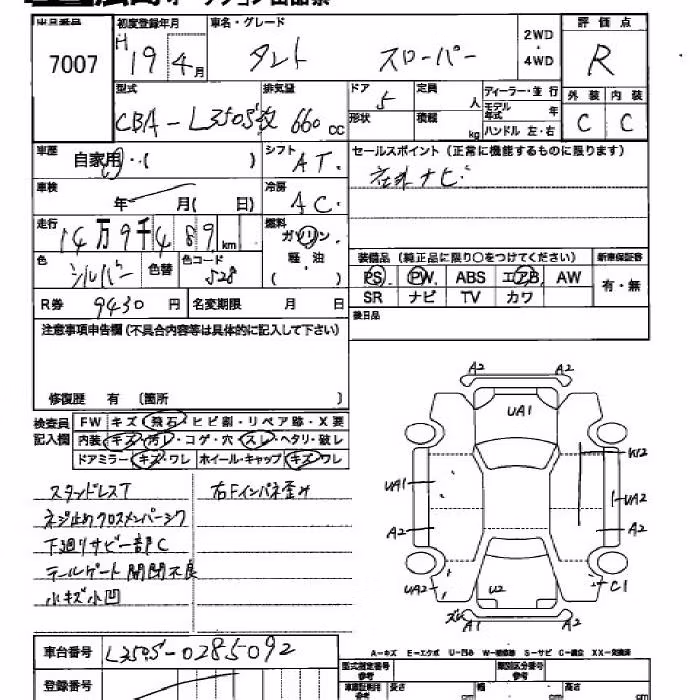 出品番号 初度登録年月 車名・グレード 2WD ・ 4WD 評価点
7007 H19 4月 タント スローパー R
型式 排気量 ドア 定員 ディーラー・並行 外装 内装
CBA-L350S改 660 CC 5 人 モデル年式 年 C C
形状 積載 kg ハンドル 左・右
車歴 自家用・( ) シフト AT. セールスポイント (正常に機能するものに限ります)
車検 年 月( 日) 冷房 AC. 社外ナビ
走行 14万9千489km 燃料 ガソリン・軽・油 ( )
色 シルバー 色替 色コード S28
装備品 (純正品に限り○をつけてください) 新車保証書
PS PW ABS エアB AW 有・無
SR ナビ TV カワ
R券 9430円 名変期限 月 日 後日品
注意事項申告欄(不具合内容等は具体的に記入して下さい)
修復歴 有 〔箇所 〕
検査員記入欄 FW キズ・飛石・ヒビ割・リペア跡・X要
内装 キズ・汚レ・コゲ・穴・スレ・ヘタリ・破レ
ドアミラー キズ・ワレ ホイール・キャップ キズ・ワレ
スタンドレスT 右Fインパネ歪み
ネジ止めクロスメンバーシワ
下廻りサビ一部C
テールゲート開閉不良
小キズ小凹
A2 A2
UA1
W2
UA1 UA2
A2 A2
UA2 U2 C1
ズレ A1 A2
A-キズ E-エクボ U-凹み W-補修跡 S-サビ C-腐食 XX-交換済
車台番号 L350S-0285092
型式指定番号 参考 類別区分番号 参考
登録番号 車庫証明用 参考 長さ cm 幅 cm 高さ cm